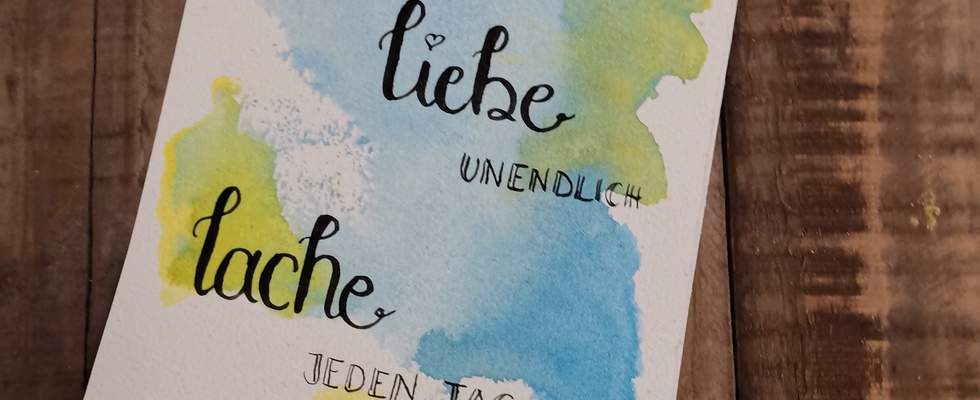 liebe
UNENDLICH
lache
JEDEN TAG